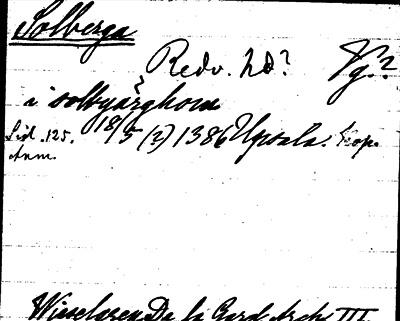 Solberga
Redv. hd? Vg.?
i solbyärghom
Lid. 125. 18/5 (?) 1386 Upsala. Kop.
Anm.
Wieselgren De la Gard. Arch. III